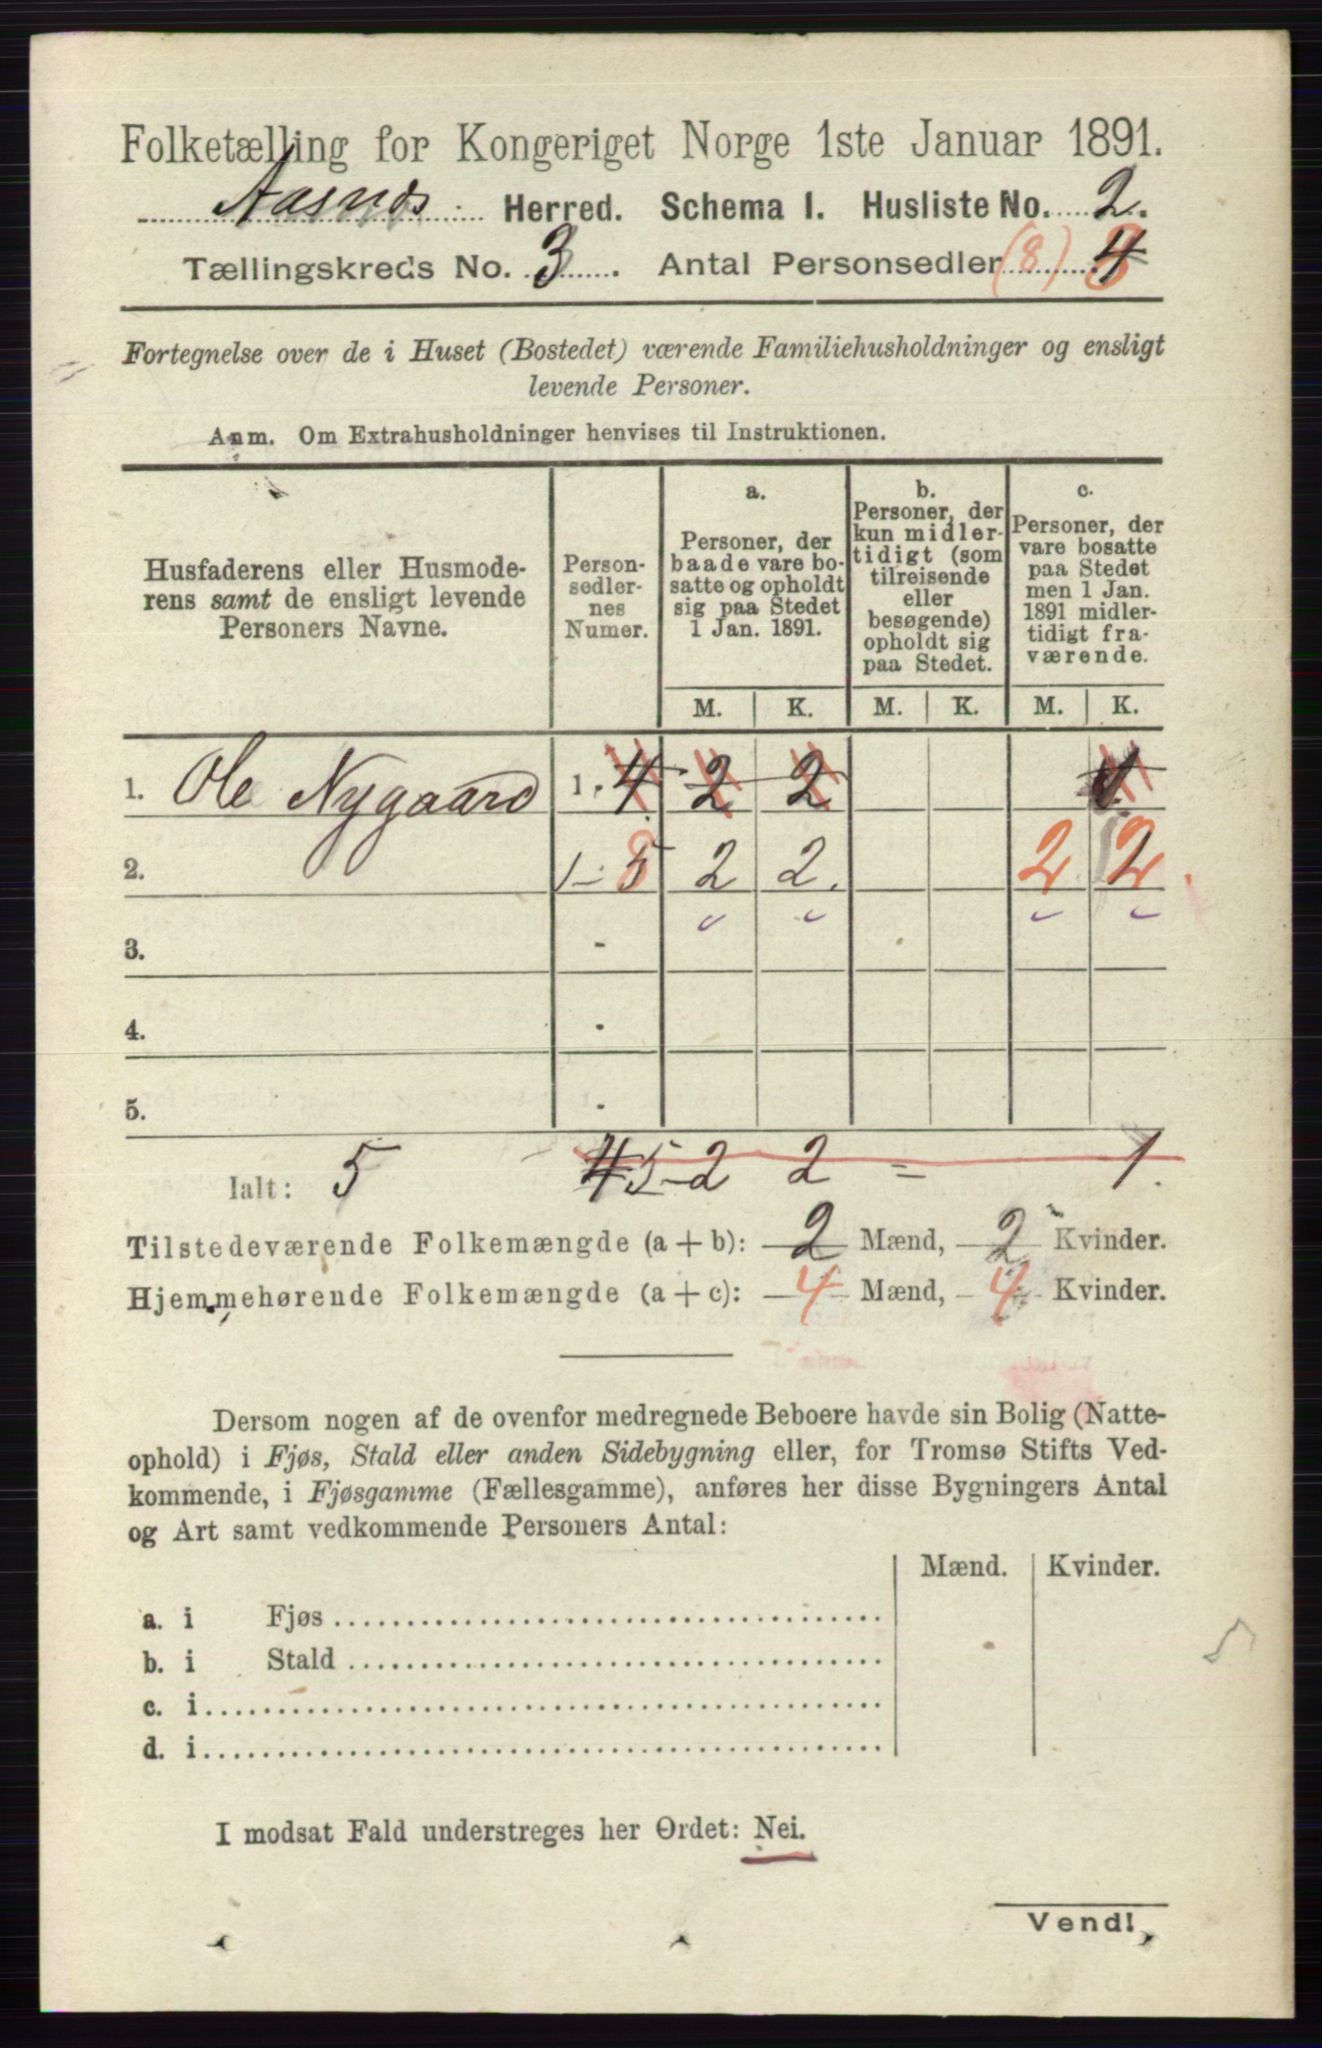 Folketælling for Kongeriget Norge 1ste Januar 1891.
Aasnes Herred. Schema I. Husliste No. 2.
Tællingskreds No. 3. Antal Personsedler (8) 4
Fortegnelse over de i Huset (Bostedet) værende Familiehusholdninger og ensligt
levende Personer.
Anm. Om Extrahusholdninger henvises til Instruktionen.
Husfaderens eller Husmode-
rens samt de ensligt levende
Personers Navne.
Person-
sedler-
nes
Numer.
a.
Personer, der
baade vare bo-
satte og opholdt
sig paa Stedet
1 Jan. 1891.
b.
Personer, der
kun midler-
tidigt (som
tilreisende
eller
besøgende)
opholdt sig
paa Stedet.
c.
Personer, der
vare bosatte
paa Stedet
men 1 Jan.
1891 midler-
tidigt fra-
værende.
M. K. M. K. M. K.
1. Ole Nygaard 1 - 4 2 2
2. 1 - 8 2 2. 2 2
3. -
4. -
5. -
Ialt: 5 4 5 2 2 = 1.
Tilstedeværende Folkemængde (a + b): 2 Mænd, 2 Kvinder.
Hjemmehørende Folkemængde (a + c): 4 Mænd, 4 Kvinder.
Dersom nogen af de ovenfor medregnede Beboere havde sin Bolig (Natte-
ophold) i Fjøs, Stald eller anden Sidebygning eller, for Tromsø Stifts Ved-
kommende, i Fjøsgamme (Fællesgamme), anføres her disse Bygningers Antal
og Art samt vedkommende Personers Antal:
Mænd. Kvinder.
a. i Fjøs
b. i Stald
c. i
d. i
I modsat Fald understreges her Ordet: Nei.
Vend!